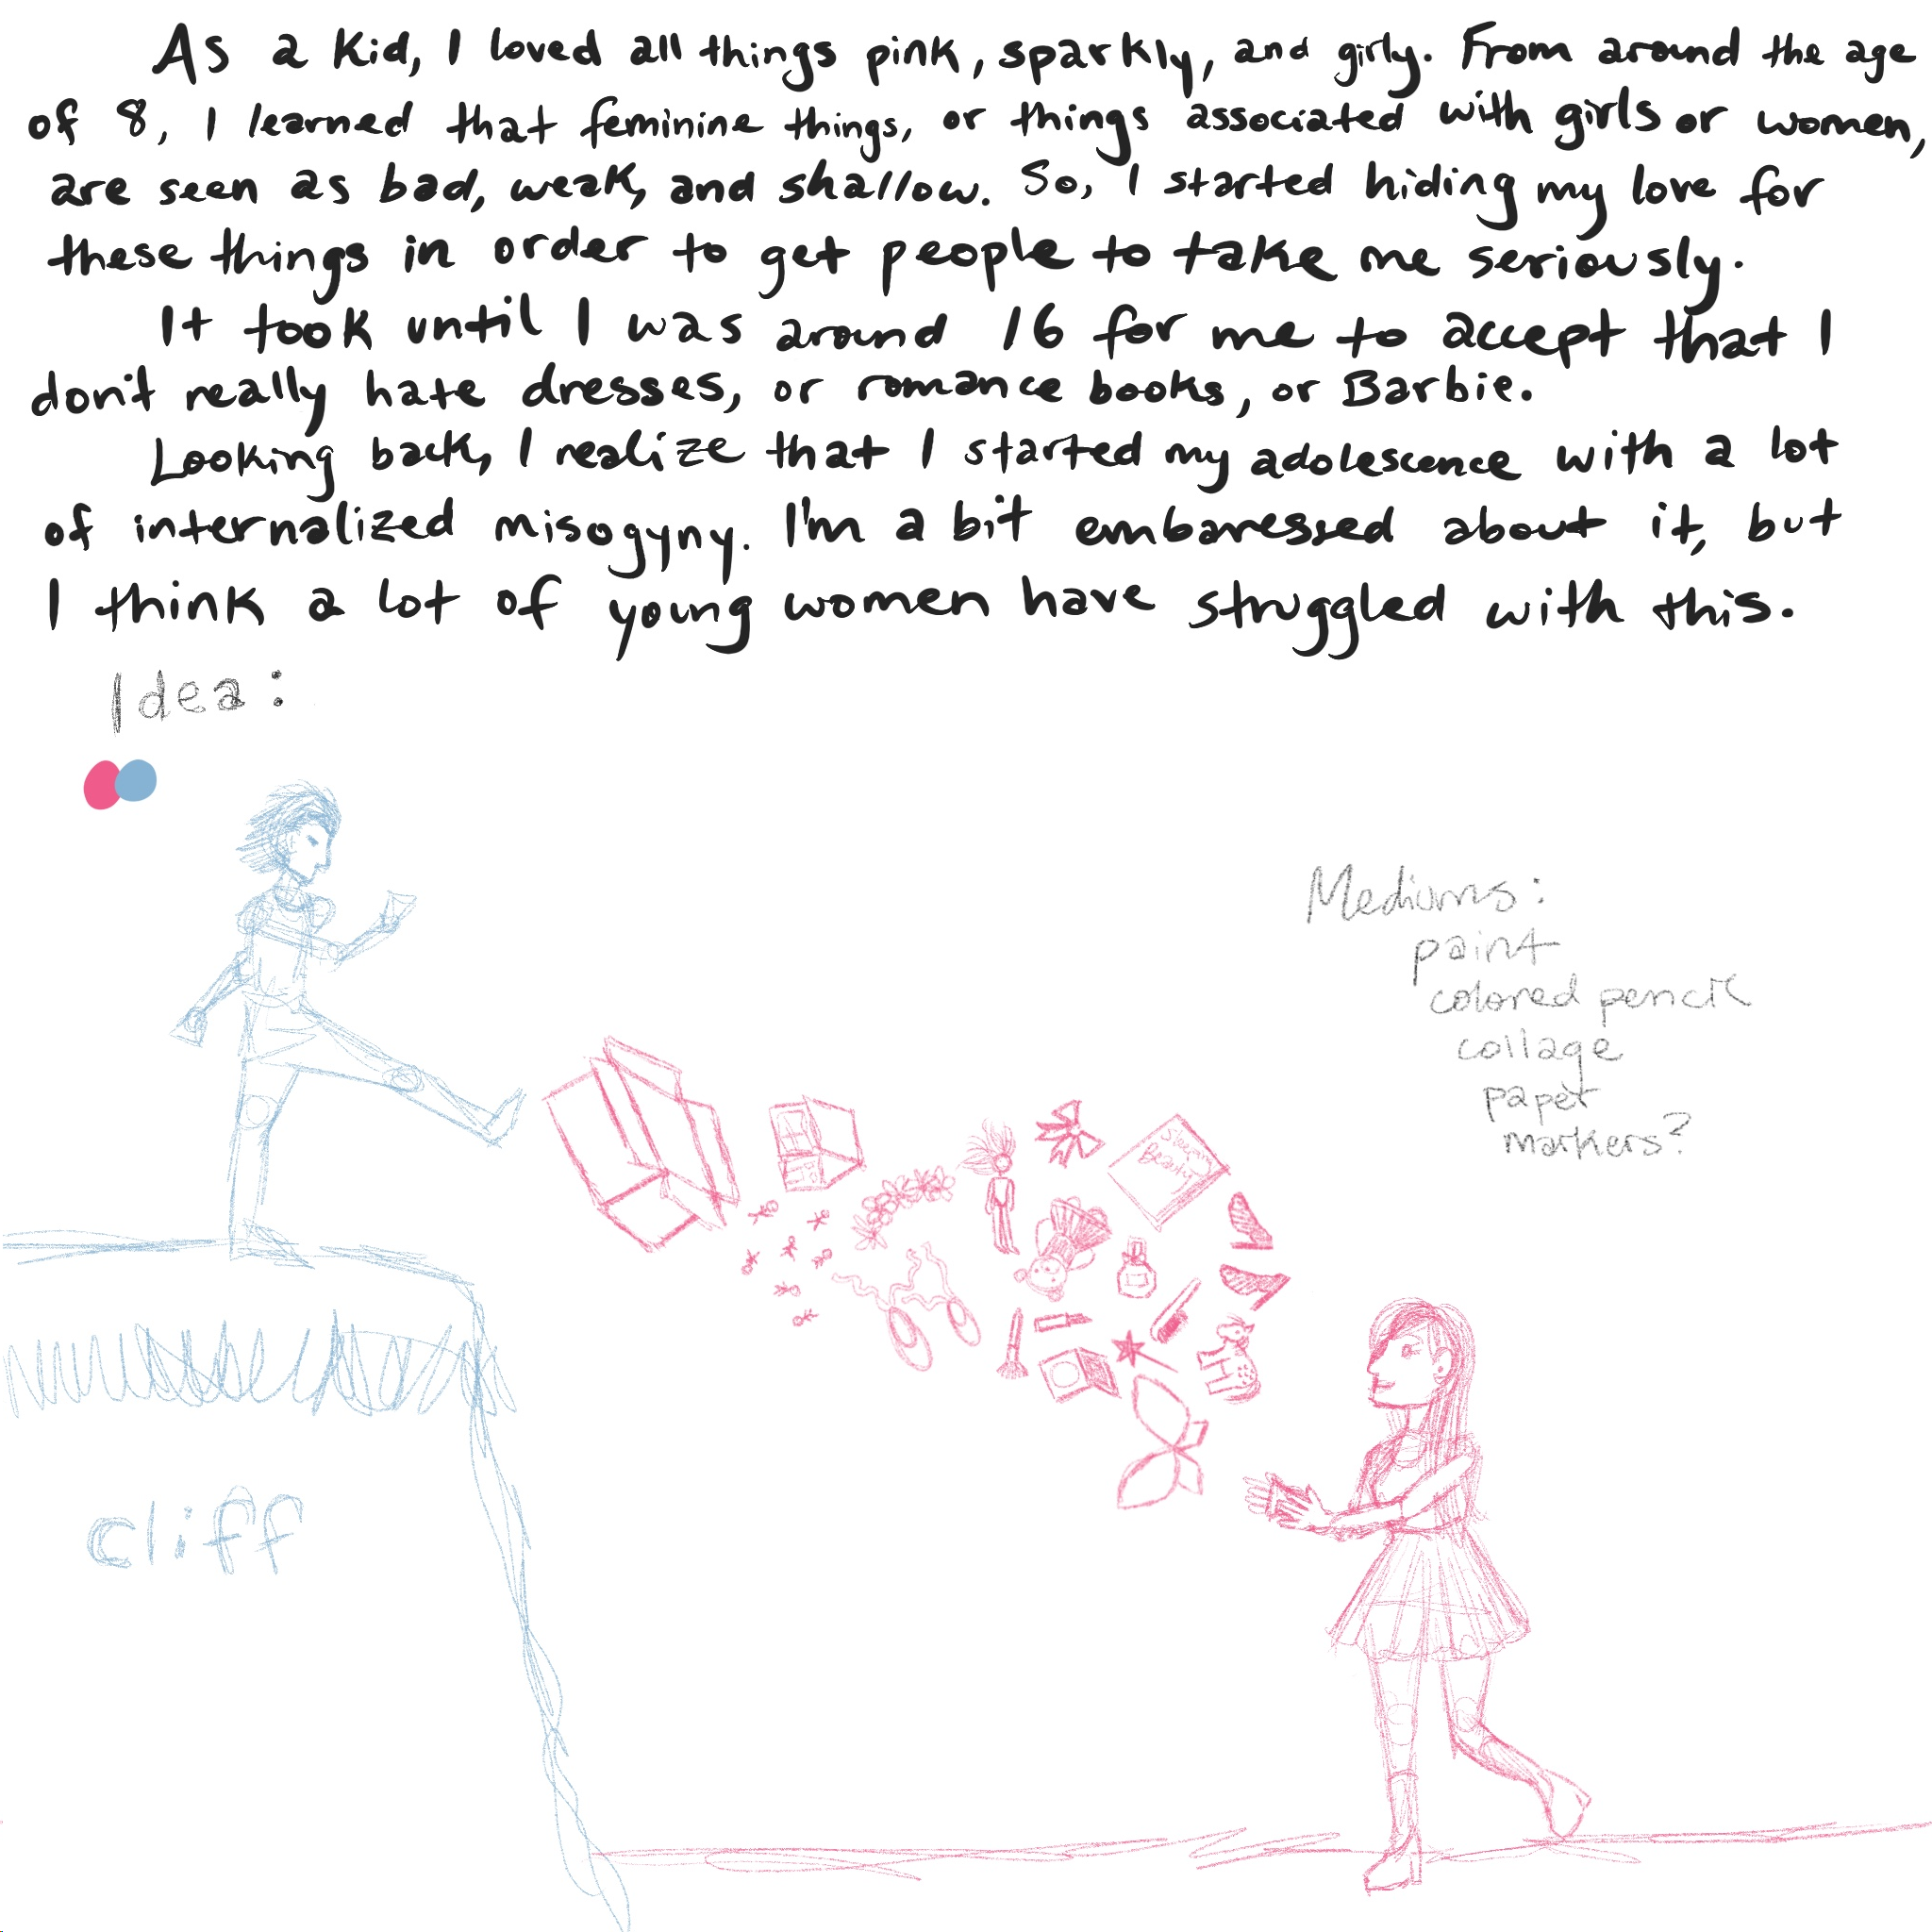 As a kid, I loved all things pink, sparkly, and girly. From around the age
of 8, I learned that feminine things, or things associated with girls or women,
are seen as bad, weak, and shallow. So, I started hiding my love for
these things in order to get people to take me seriously.
It took until I was around 16 for me to accept that I
don't really hate dresses, or romance books, or Barbie.
Looking back, I realize that I started my adolescence with a lot
of internalized misogyny. I'm a bit embaressed about it, but
I think a lot of young women have struggled with this.
Idea:
Mediums:
paint
colored pencil
collage
paper
markers?
Sleeping
Beauty
cliff